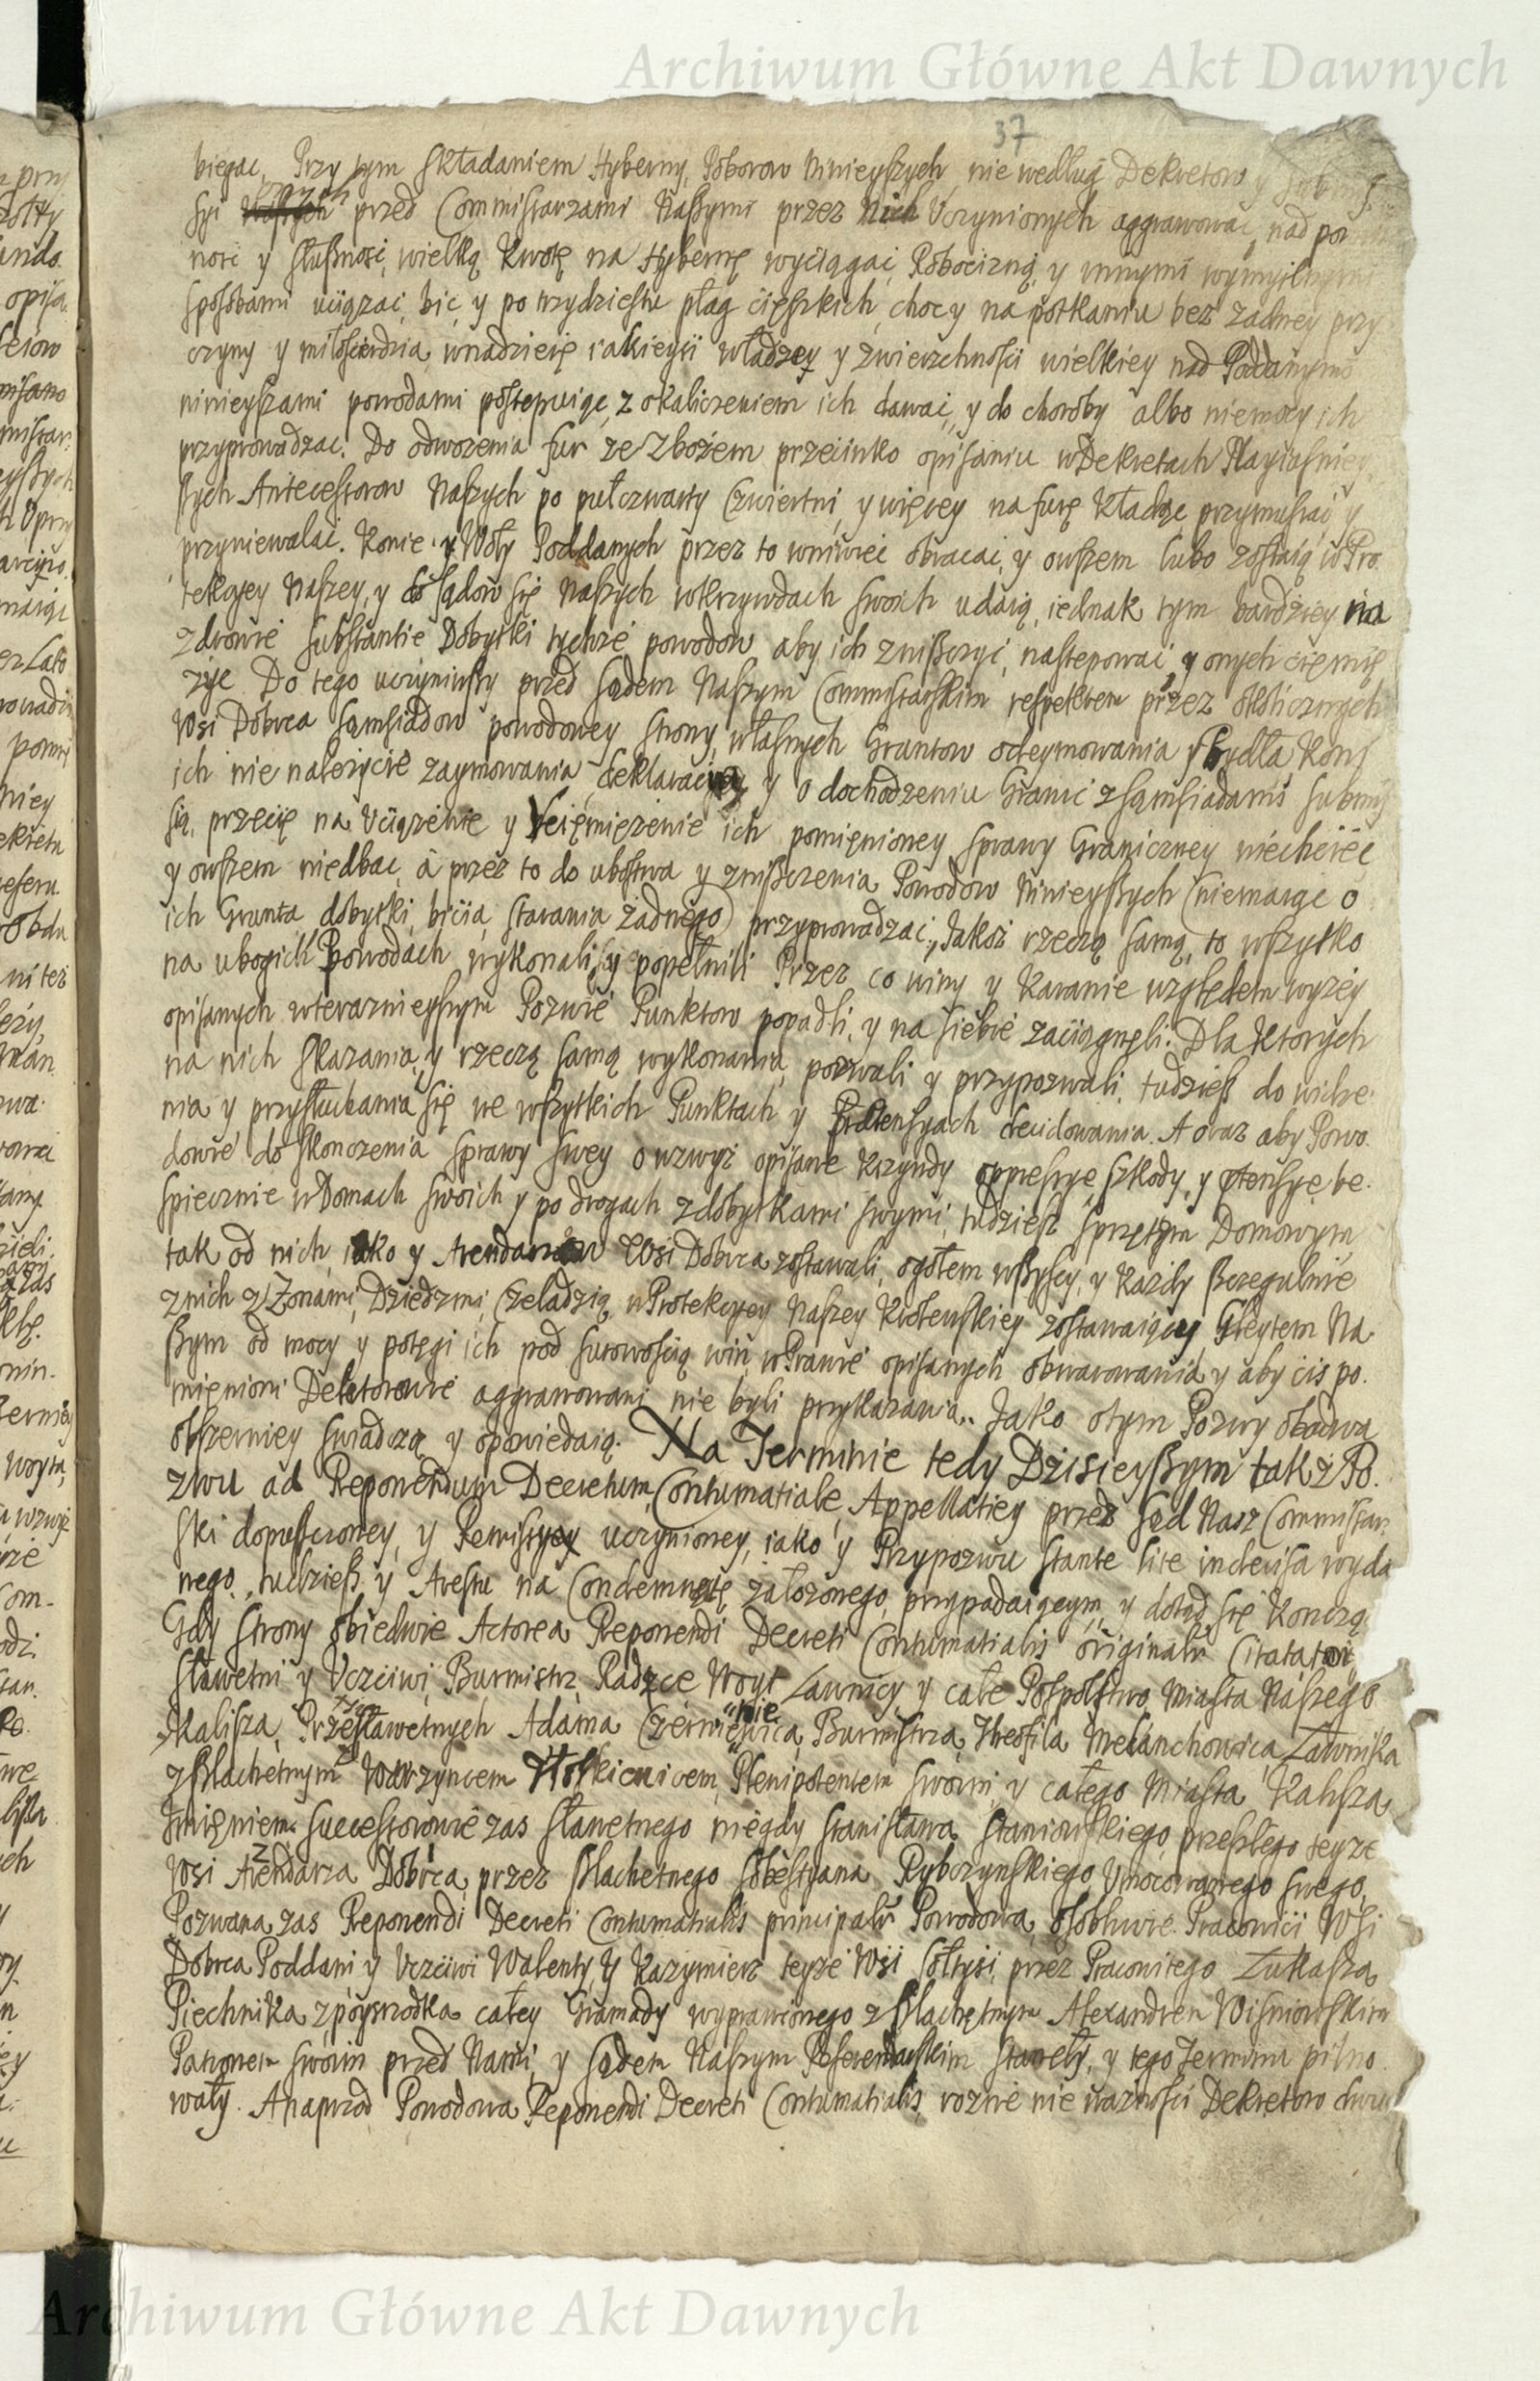 Archiwum Główne Akt Dawnych
37
biegac, Przy tym składaniem Hyberny, Poborow Ninieyszych, nie według Dekretow y
syi przed Commissarzami Naszymi przez Nich Uczynionych aggrawować, nad
nosc y słusznosc, wielką Kwotę na Hybernę wyciągać, Robocizną, y innymi wymyślnymi
sposobami uciązać, bic, y po trzydziestu plag cięszkich, chocy na potkaniu bez zadney przy
czyny y miłosierdzia, wnadzieię iakieysi władzey y zwierzchnosci wielkiey nad Poddanymi
ninieyszami powodami postępuiąc, z okaliczeniem ich dawać, y do choroby albo niemocy ich
przyprowadzac. Do odwozenia fur ze Zbożem przeciwko opisaniu w Dekretach Nayiasniey
szych Antecessorow Naszych po pułczwarty Cwiertni, y więcey na furę Kładąc przymuszać y
przyniewalać. Konie y Woły Poddanych przez to wniwec obracać, y owszem lubo zostaią w Pro
tekcyey Naszey, y do sądow się Naszych wkrzywdach swoich udaią, iednak tym bardziey na
zdrowie substantie Dobytki tychże powodow, aby ich zniszczyć, nastepować, y onych ciemię
zyć. Do tego uczyniwszy przed sądem Naszym Commissarskim respektem przez okolicznych
Wsi Dobrca sąmsiadow powodowey strony własnych Gruntow odeymowania y bydła Koni
ich nie należycie zaymowania deklaracyą, y o dochodzeniu Granic z sąmsiadami submis
sią, przecię na Uciązenie y Uciemiężenie ich pomienioney sprawy Graniczney niechcieć
y owszem niedbac, á przez to do ubostwa y zniszczenia Powodow Ninieyszych (niemaiąc o
ich Grunta, dobytki, bicia, starania żadnego) przyprowadzać, Jakoż rzeczą samą, to wszytko
na ubogich Powodach wykonali, y popełnili Przez co winy y Karanie względem wyzey
opisanych wteraznieyszym Pozwie Punktow popadli, y na siebie zaciągnęli. Dla Ktorych
na nich skazania, y rzeczą samą wykonania, pozwali y przypozwali, tudziesz do widze
nia y przysłuchania się we wszytkich Punktach y Pretensyach decidowania. A oraz aby Powo
dowie do skonczenia sprawy swey o wzwyz opisane Krzywdy oppressye, szkody, y be
spiecznie w Domach swoich y po drogach z dobytkami swymi, tudziesz sprzętem Domowym
tak od nich, iako y Arendarzow Wsi Dobrca zostawali, ogołem wszyscy, y Kazdy szczegulnie
znich z Żonami, Dziedzmi, Czeladzią w Protekcyey Naszey Krolewskiey zostawaiący, Gleytem Na
szym od mocy y potęgi ich pod surowoscią win w Prawie opisanych obwarowania, y aby cis po
mienioni Delatorowie aggrawowani nie byli przykazania. Jako otym Pozwy obadwa
obszerniey swiadczą y opowiedaią. Na Terminie tedy Dzisieyszym tak z Po
zwu ad Reponendum Decretum Contumatiale, Appellatiey przez Sąd Nasz Commissar
ski dopuszczoney, y Remissyey uczynioney, iako y Przypozwu stante lite indecisa wyda
nego, tudziesz y Arestu na Condemnatę założonego, przypadaiącym, y dotąd się Konczą
Gdy strony obiedwie Actorea Reponendi Decreti Contumatialis originalr Citata
Sławetni y Uczciwi, Burmistrz, Radzce Woyt Ławnicy, y całe Pospolstwo Miasta Naszego
Kalisza, Przesławetnych Adama Burmistrza, Theofila Melanchowica, Ławnika
z Szlachetnym Wawrzyncem Plenipotentem swoim, y całego Miasta Kalisza
Imięniem. Successorowie zas sławetnego niegdy Stanisława Staniowskiego przeszłego teyze
Wsi Arendarza Dobrca, przez Szlachetnego Sobestyana Rybczynskiego, Umocowanego swego
Pozwana zas Reponendi Decreti Contumatialis principalr Powodowa, osobliwie Pracowici Wsi
Dobrca Poddani y Uczciwi Walenty, y Kazymierz teyze Wsi Sołtysi, przez Pracowitego Łukasza
Piechnika z posrzodka całey Gramady wyprawionego z Szlachetnym Alexandrem Wisniowskim
Patronem swoim przed Nami, y Sądem Naszym Referendarskim stanęły, y tego Terminu pilno
wały. Anaprzod Powodowa Reponendi Decreti Contumatialis, rozne nie ważnosci Dekretow
Archiwum Główne Akt Dawnych